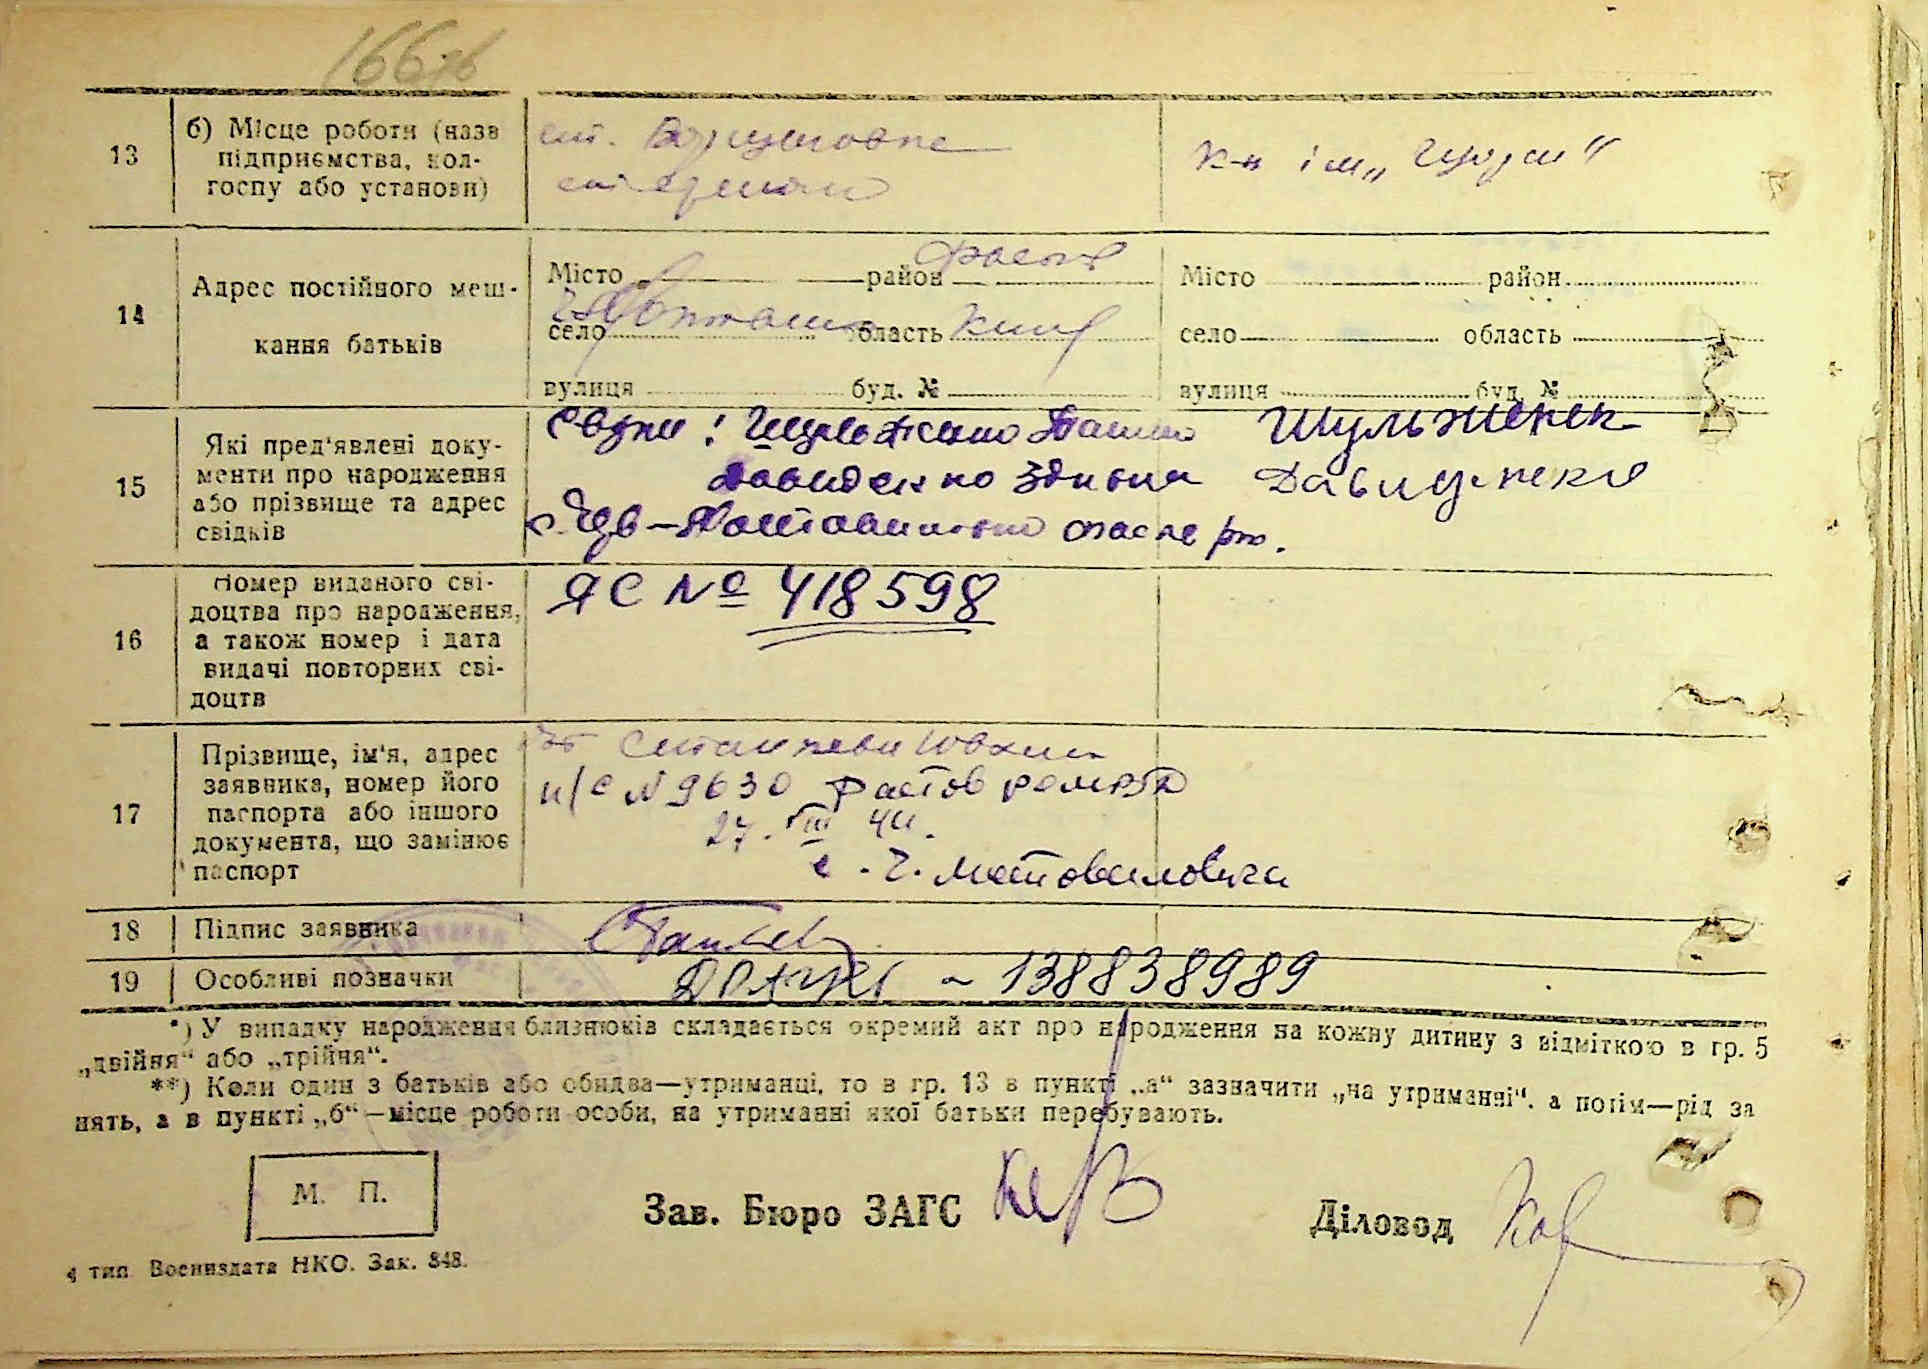 166зв
13 б) Місце роботи (назв
підприємства, кол-
госпу або установи)
ст.
к-п ім „Щорси“
14 Адрес постійного меш-
кання батьків
Місто район
село область Київ
вулиця буд. №
Місто район
село область
вулиця буд. №
15 Які пред'явлені доку-
менти про народження
або прізвище та адрес
свідків
Свідки: Шульженко Шульженк
Давиденко Давиденко
с.
16 Номер виданого сві-
доцтва про народження,
а також номер і дата
видачі повторних сві-
доцтв
ЯС № 418598
17 Прізвище, ім'я, адрес
заявника, номер його
паспорта або іншого
документа, що замінює
паспорт
п/с N 9630 Фастов
27. III
с. Ч. Мотовиловка
18 Підпис заявника
19 Особливі позначки
ДРАЦС ~ 138838989
*) У випадку народження близнюків складається окремий акт про народження на кожну дитину з відміткою в гр. 5
„двійня“ або „трійня“.
**) Коли один з батьків або обидва—утриманці, то в гр. 13 в пункті „а“ зазначити „на утриманні“, а потім—рід за
нять, а в пункті „б“—місце роботи особи, на утриманні якої батьки перебувають.
М. П.
Зав. Бюро ЗАГС
Діловод
4 тип Воениздата НКО. Зак. 848.